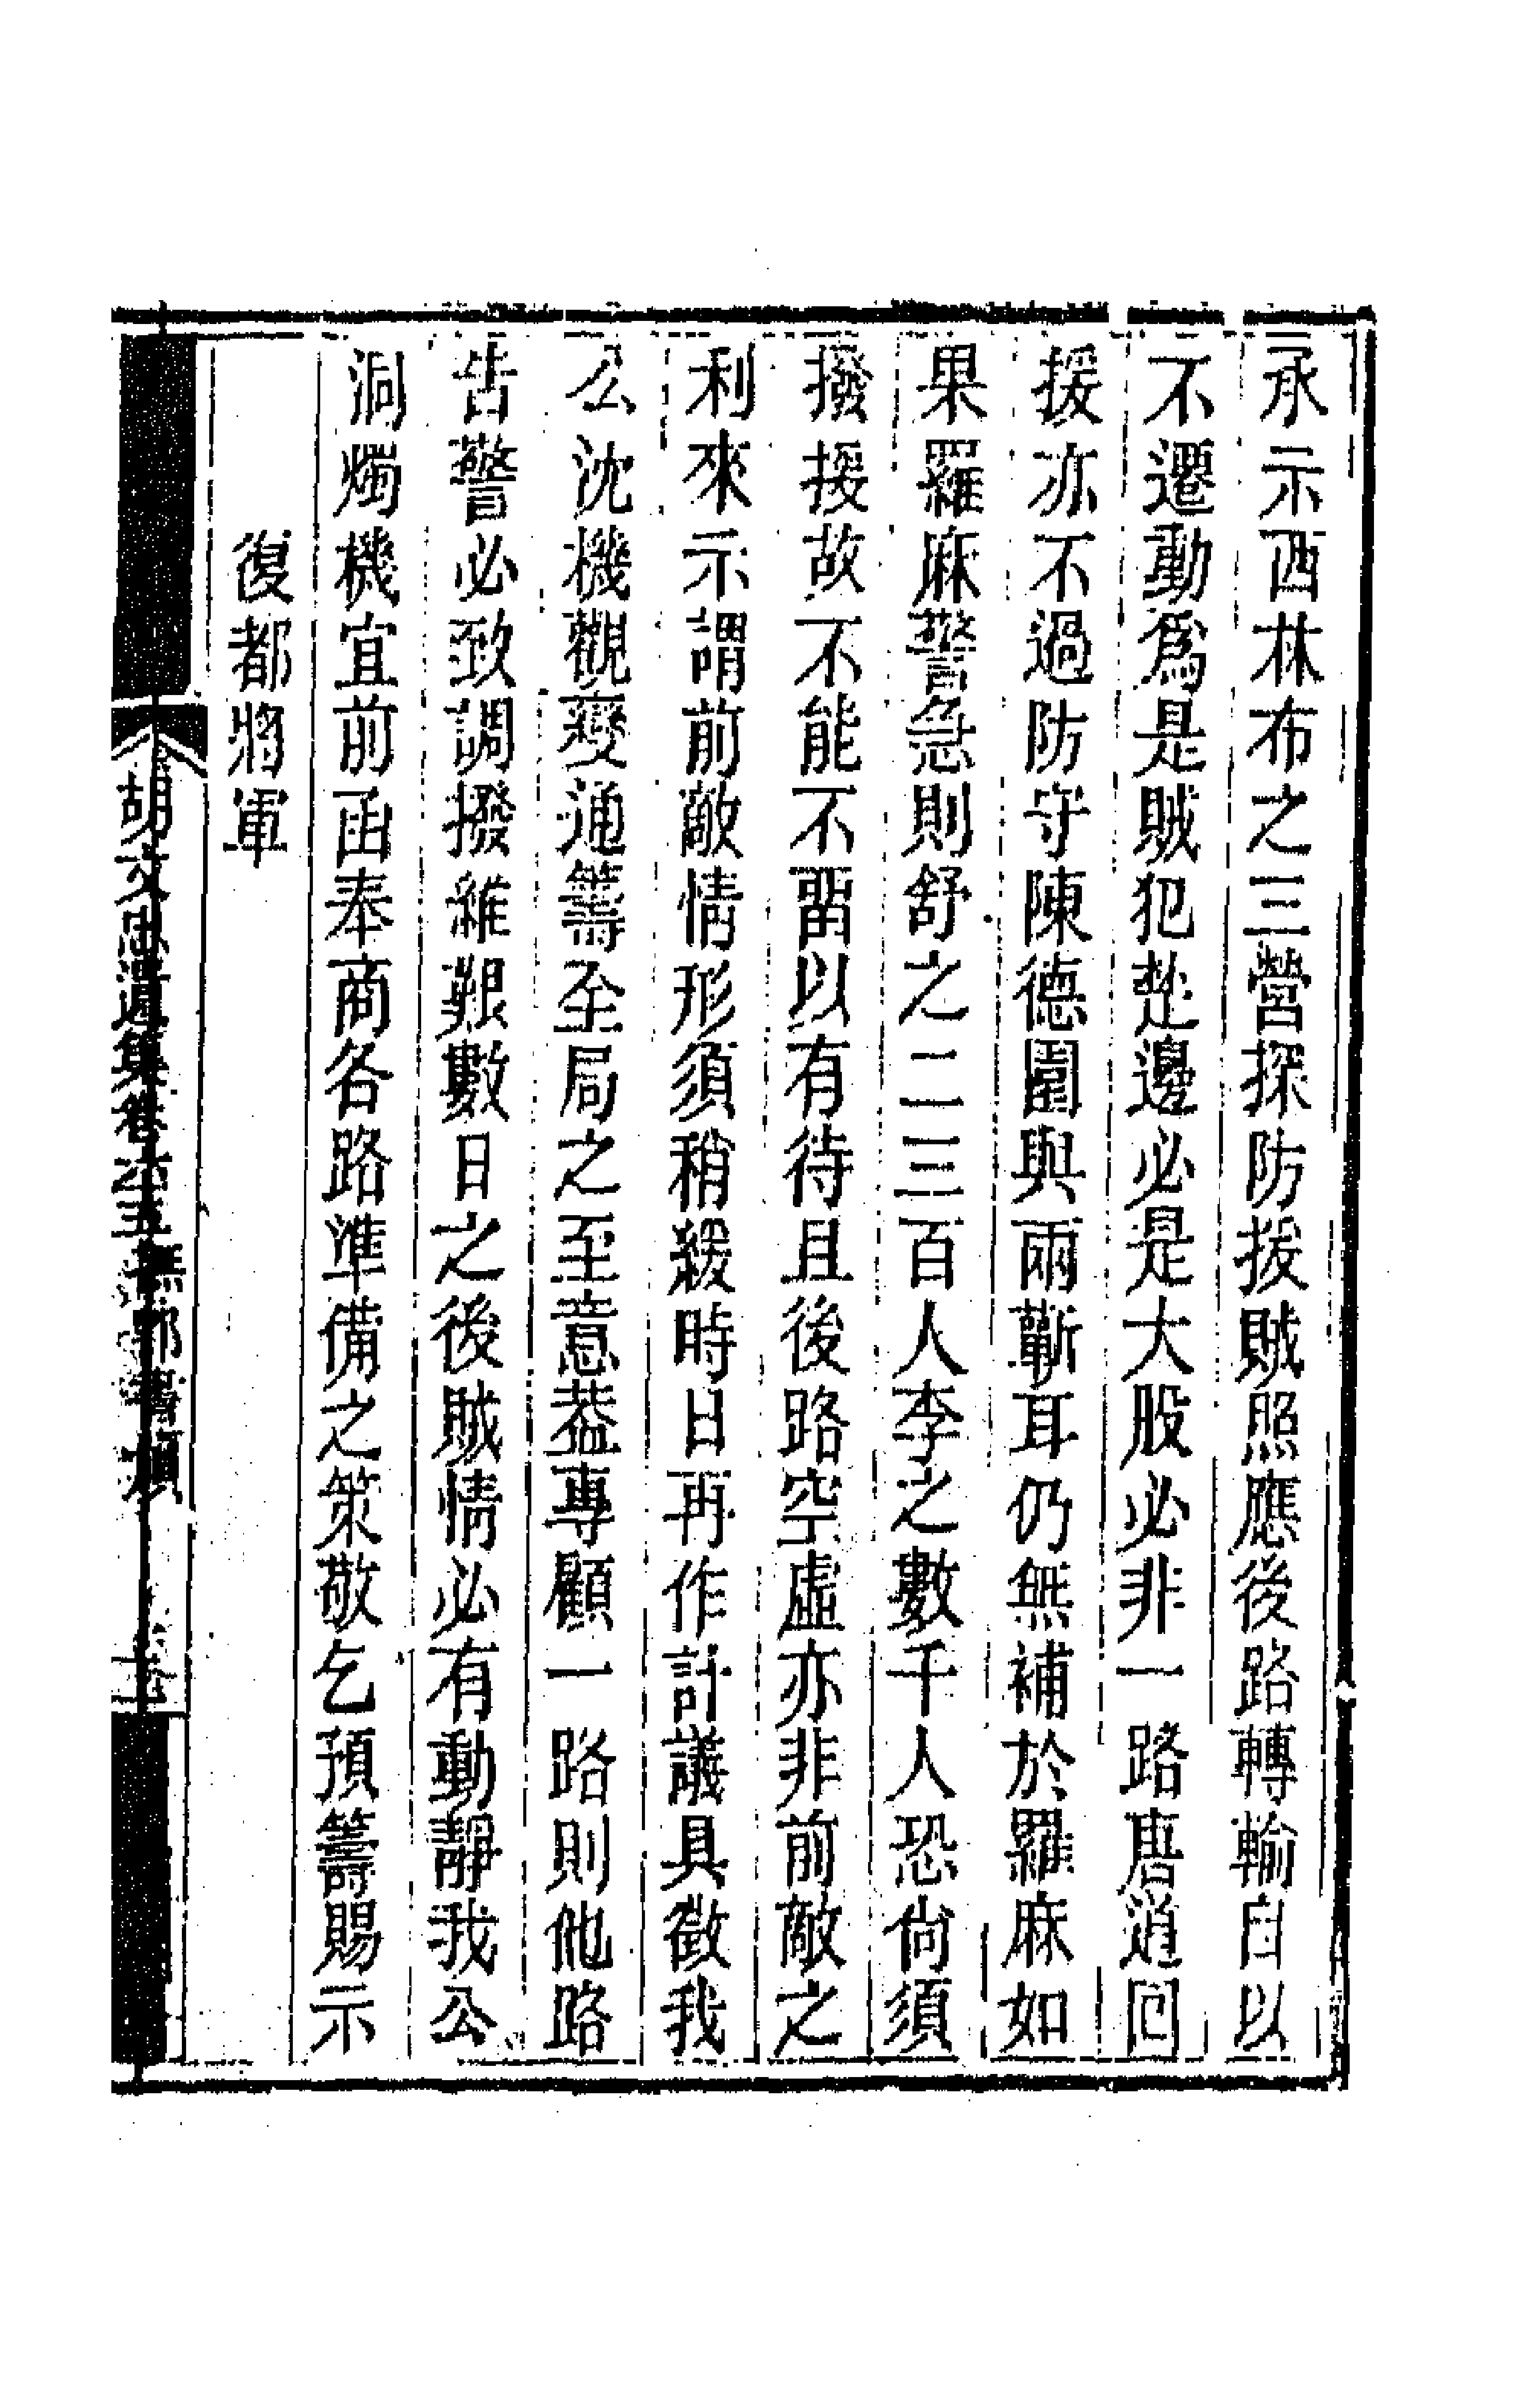 承示西林布之三營探防援賊照應後路轉輸自以
不遷動爲是賊犯楚邊必是大股必非一路唐道回
援亦不過防守陳德園與兩蘄耳仍無補於羅麻如
果羅麻警急則舒之二三百人李之數千人恐尙須
撥援故不能不留以有待且後路空虛亦非前敵之
利來示謂前敵情形須稍緩時日再作計議具徵我
公沈機觀變通籌至局之至意葢專顧一路則他路
告警必致調撥維艱數日之後賊情必有動靜我公
洞燭機宜前函奉商各路準備之策敬乞預籌賜示
復都將軍
胡文忠遺集卷六五 撫鄂書牘